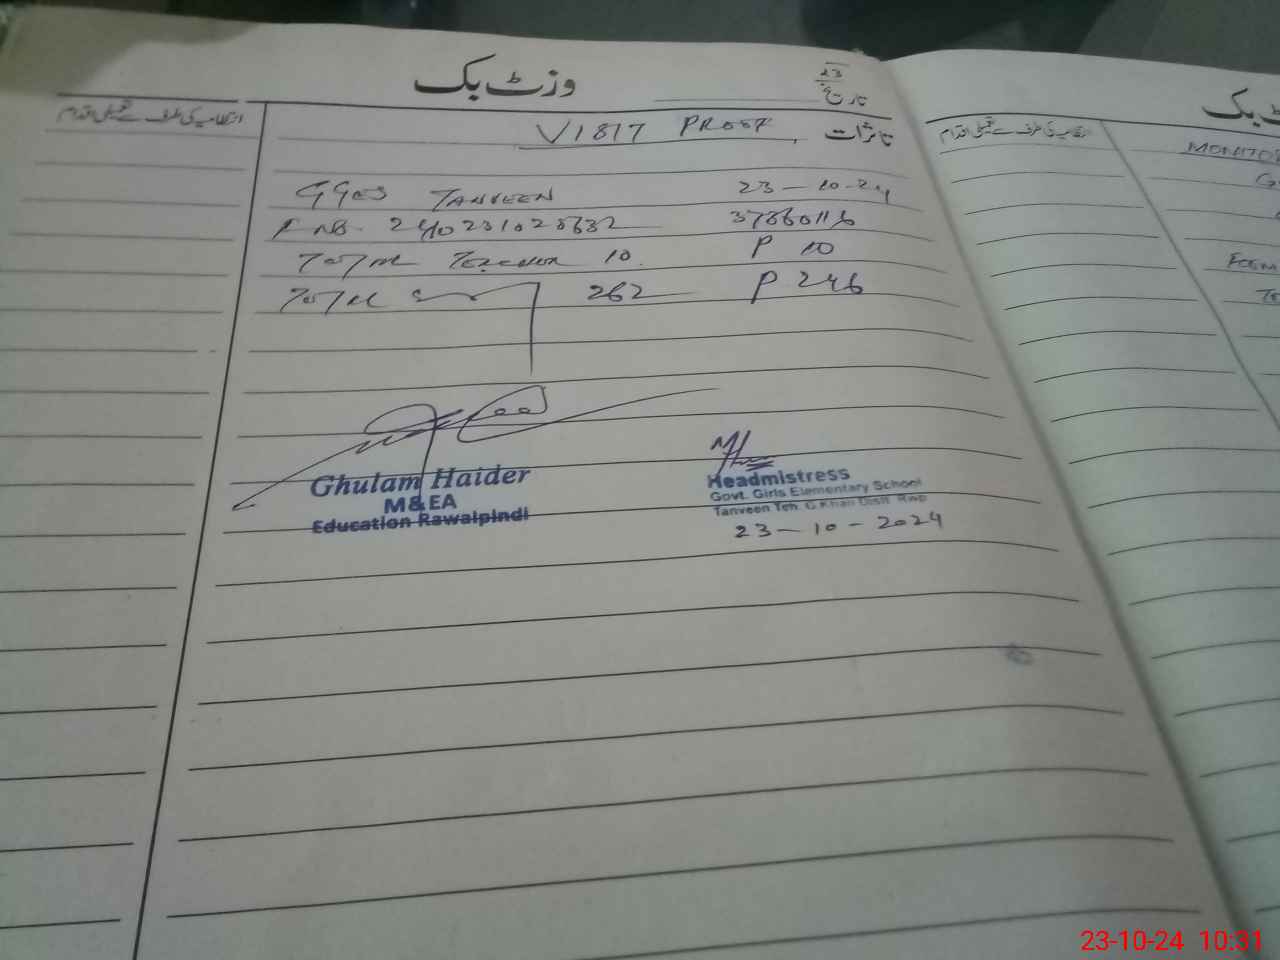 وزٹ بک
23
تاریخ
انتظامیہ کی طرف سے تعمیلی اقدام
تاثرات
VISIT PROOF
GGES TANVEEN 23-10-24
F NO. 37360116
TOTAL TEACHER 10. P 10
TOTAL 262 P 246
Ghulam Haider
M&EA
Education Rawalpindi
Headmistress
Govt. Girls Elementary School
Tanveen Teh. G.Khan Distt. Rwp
23-10-2024
انتظامیہ کی طرف سے تعمیلی اقدام
23-10-24 10:31